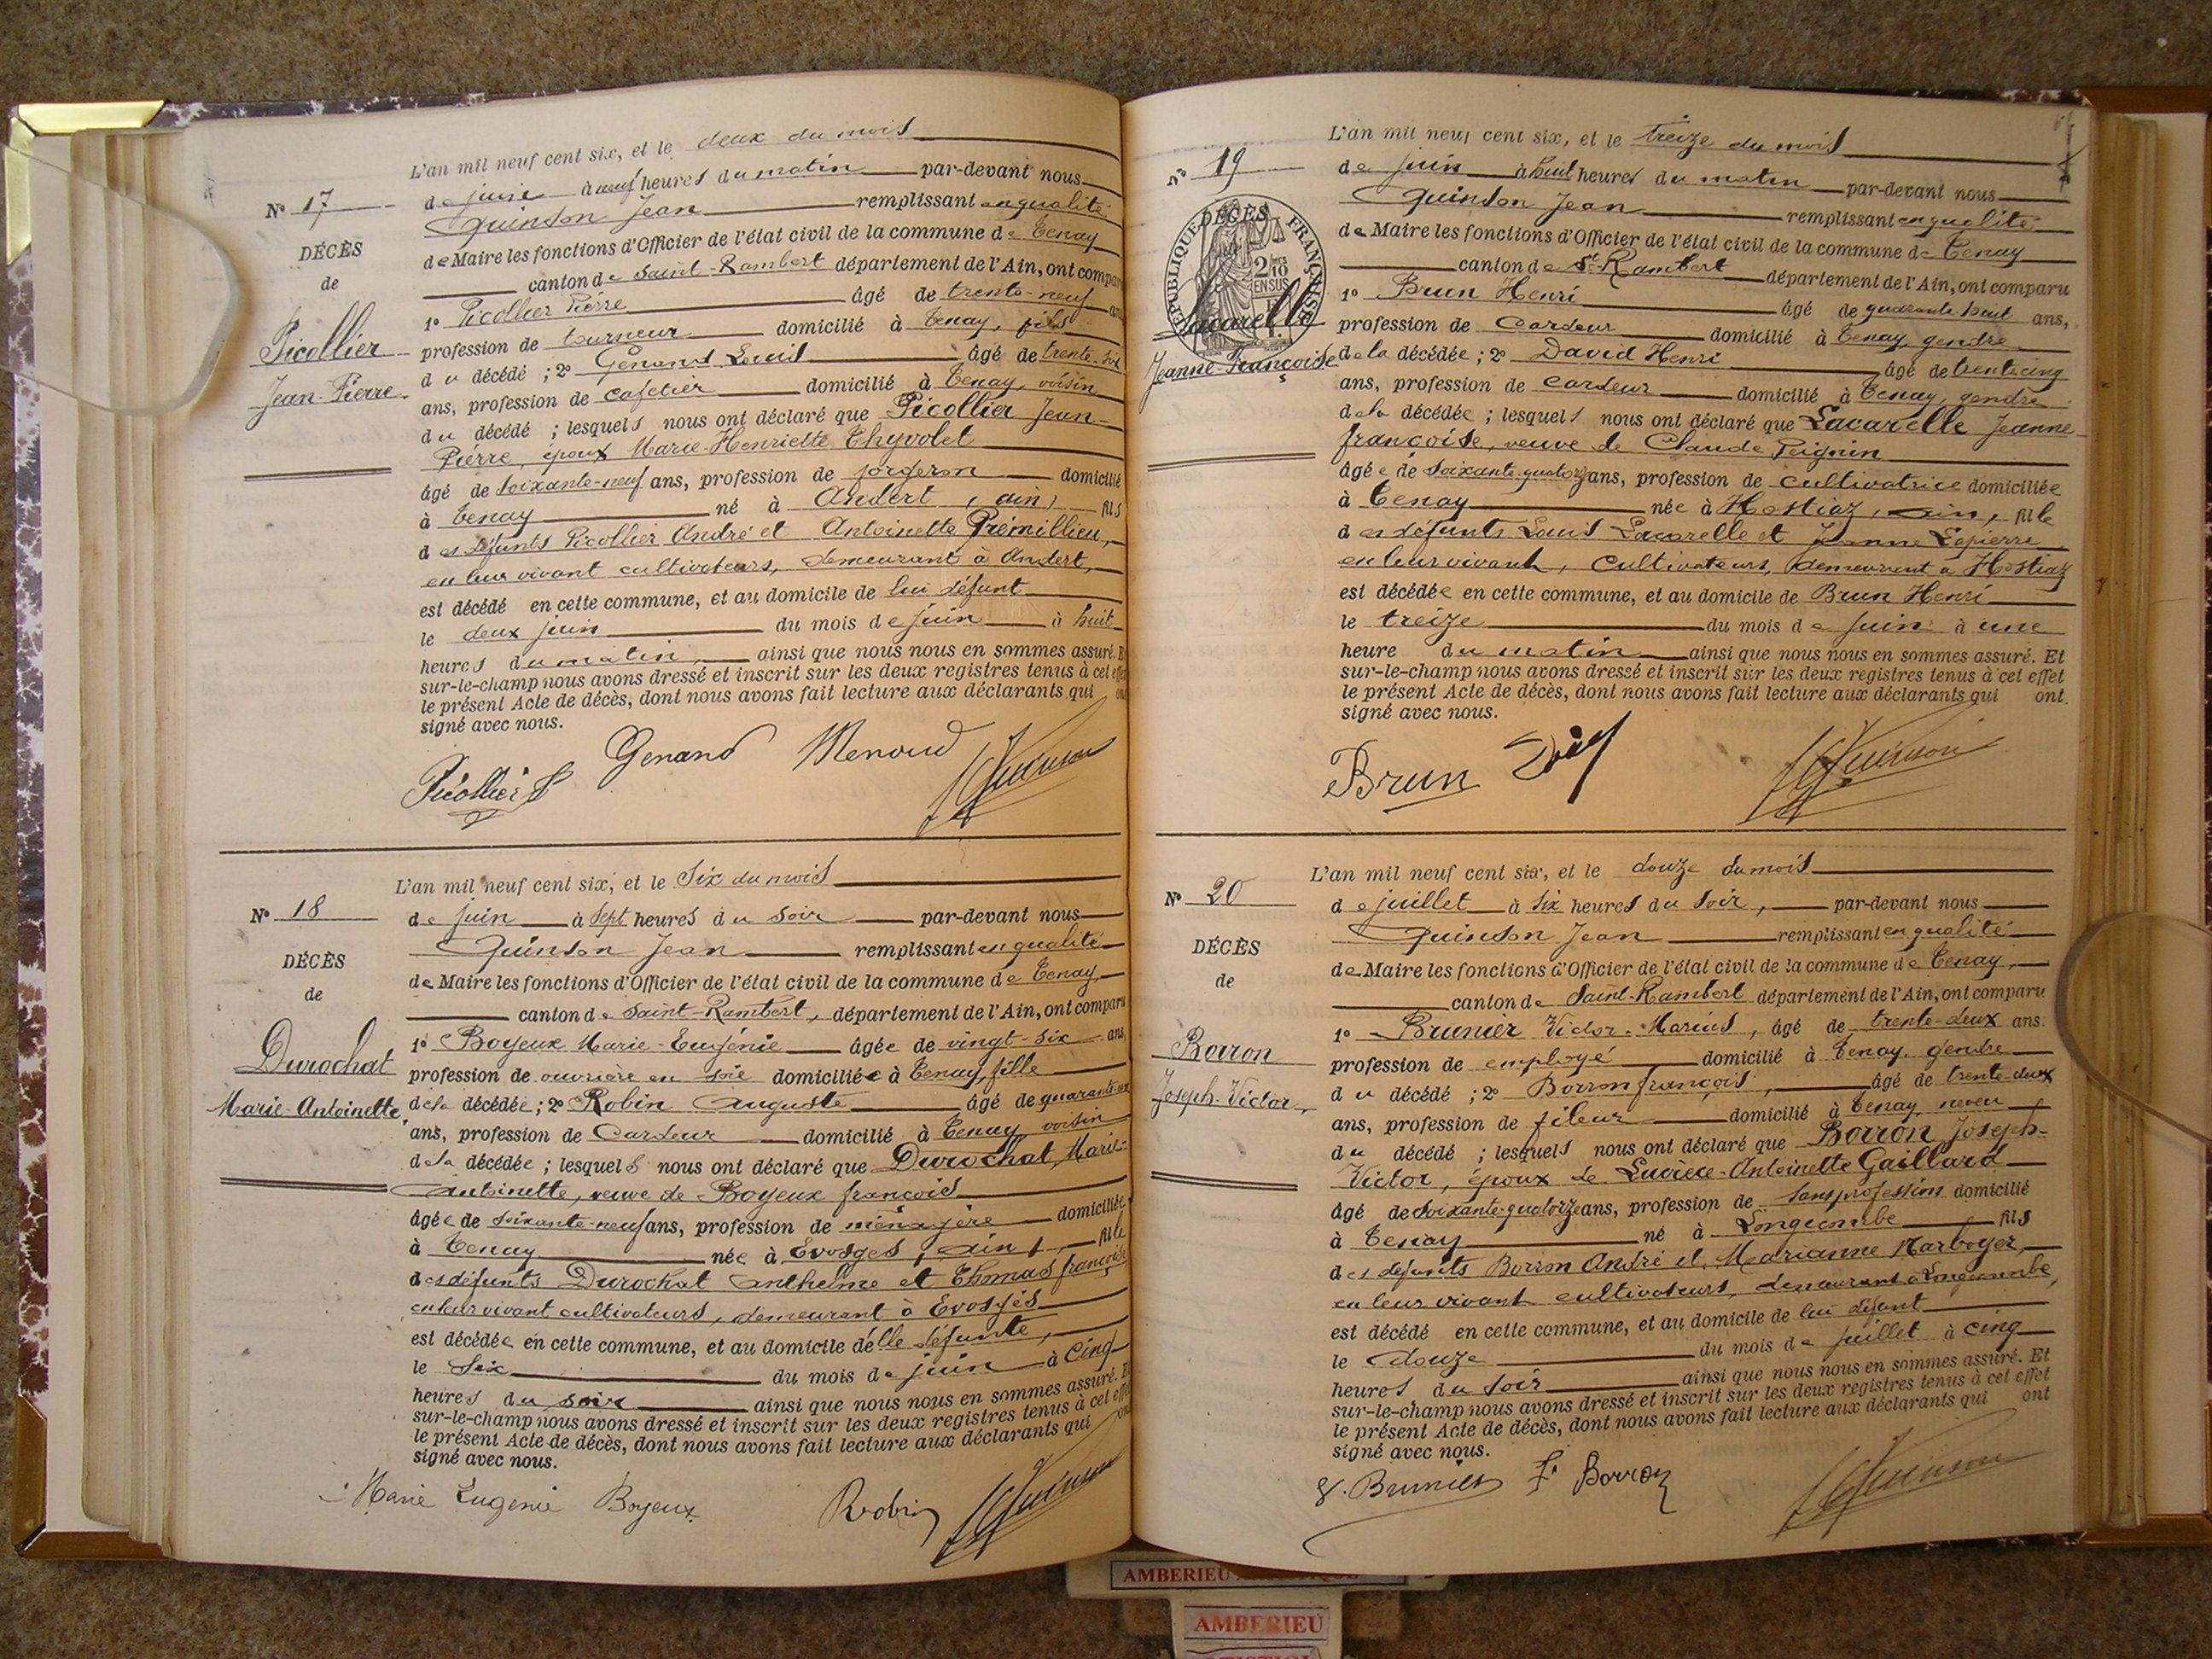 L'an mil neuf cent six, et le deux du mois
de juin à neuf heures du matin par-devant nous
Quinson Jean remplissant en qualité
de Maire les fonctions d'Officier de l'état civil de la commune de Tenay
canton de Saint-Rambert département de l'Ain, ont compar
1° Picollier Pierre âgé de trente-neuf ans
profession de tourneur domicilié à Tenay, fils
du décédé ; 2° Genand Louis âgé de trente-six
ans, profession de cafetier domicilié à Tenay, voisin
du décédé ; lesquels nous ont déclaré que Picollier Jean-
Pierre, époux Marie-Henriette Thyvolet
âgé de soixante-neuf ans, profession de forgeron domicilié
à Tenay né à Andert, (ain) fils
des défunts Picollier André et Antoinette Prémillieu,
en leur vivant cultivateurs, demeurant à Andert,
est décédé en cette commune, et au domicile de lui défunt
le deux juin du mois de juin à huit
heures du matin, ainsi que nous nous en sommes assuré. E
sur-le-champ nous avons dressé et inscrit sur les deux registres tenus à cet effet
le présent Acte de décès, dont nous avons fait lecture aux déclarants qui ont
signé avec nous.
N° 17
DÉCÈS
de
Picollier
Jean-Pierre.
Picollier P Genand Menoud JQuinson
L'an mil neuf cent six, et le six du mois
de juin à sept heures du soir par-devant nous
Quinson Jean remplissant en qualité
de Maire les fonctions d'Officier de l'état civil de la commune de Tenay,
canton de Saint-Rambert, département de l'Ain, ont comparu
1° Boyeux Marie-Eugénie âgée de vingt-six ans,
profession de ouvrière en soie domiciliée à Tenay, fille
de la décédée ; 2° Robin Auguste âgé de quarante
ans, profession de Cardeur domicilié à Tenay, voisin
de la décédée ; lesquels nous ont déclaré que Durochat, Marie-
Antoinette, veuve de Boyeux françois
âgée de soixante-neuf ans, profession de ménagère domiciliée
à Tenay née à Evosges, (ain), fille
des défunts Durochat Anthelme et Thomas françoise
en leur vivant cultivateurs, demeurant à Evosges
est décédée en cette commune, et au domicile delle défunte,
le Six du mois de juin à cinq
heures du soir ainsi que nous nous en sommes assuré. E
sur-le-champ nous avons dressé et inscrit sur les deux registres tenus à cet effet
le présent Acte de décès, dont nous avons fait lecture aux déclarants qui ont
signé avec nous.
N° 18
DÉCÈS
de
Durochat
Marie-Antoinette,
Marie Eugenie Boyeux Robin JQuinson
L'an mil neuf cent six, et le treize du mois
de juin à huit heures du matin par-devant nous
Quinson Jean remplissant en qualité
de Maire les fonctions d'Officier de l'état civil de la commune de Tenay
canton de St-Rambert département de l'Ain, ont comparu
1° Brun Henri âgé de quarante huit ans,
profession de Cardeur domicilié à Tenay, gendre
de la décédée ; 2° David Henri âgé de trente cinq
ans, profession de cardeur domicilié à Tenay, gendre
de la décédée ; lesquels nous ont déclaré que Lacarelle Jeanne-
françoise, veuve de Claude Peignin
âgée de soixante-quatorze ans, profession de cultivatrice domiciliée
à Tenay née à Hostiaz, ain, fille
des défunts Louis Lacarelle et Jeanne Lapierre
en leur vivant, cultivateurs, demeurant à Hostiaz
est décédée en cette commune, et au domicile de Brun Henri
le treize du mois de juin à une
heure du matin ainsi que nous nous en sommes assuré. Et
sur-le-champ nous avons dressé et inscrit sur les deux registres tenus à cet effet
le présent Acte de décès, dont nous avons fait lecture aux déclarants qui ont
signé avec nous.
N° 19
DÉCÈS
RÉPUBLIQUE FRANÇAISE
2/10
EN SUS
Lacarelle
Jeanne-Françoise
Brun JQuinson
L'an mil neuf cent six, et le douze du mois
de juillet à six heures du soir, par-devant nous
Quinson Jean remplissant en qualité
de Maire les fonctions d'Officier de l'état civil de la commune de Tenay,
canton de Saint-Rambert département de l'Ain, ont comparu
1° Brunier Victor-Marius, âgé de trente-deux ans.
profession de employé domicilié à Tenay, gendre
du décédé ; 2° Borron françois, âgé de trente-deux
ans, profession de fileur domicilié à Tenay, neveu
du décédé ; lesquels nous ont déclaré que Borron, Joseph-
Victor, époux de Lucrèce-Antoinette Gaillard
âgé de soixante-quatorze ans, profession de sans profession domicilié
à Tenay né à Longecombe fils
des défunts Borron André et Marianne Marboyer,
en leur vivant cultivateurs, demeurant à Longecombe,
est décédé en cette commune, et au domicile de lui défunt
le douze du mois de juillet à cinq
heures du soir ainsi que nous nous en sommes assuré. Et
sur-le-champ nous avons dressé et inscrit sur les deux registres tenus à cet effet
le présent Acte de décès, dont nous avons fait lecture aux déclarants qui ont
signé avec nous.
N° 20
DÉCÈS
de
Borron
Joseph-Victor,
V. Brunier F. Borron JQuinson
AMBERIEU
AMBERIEU